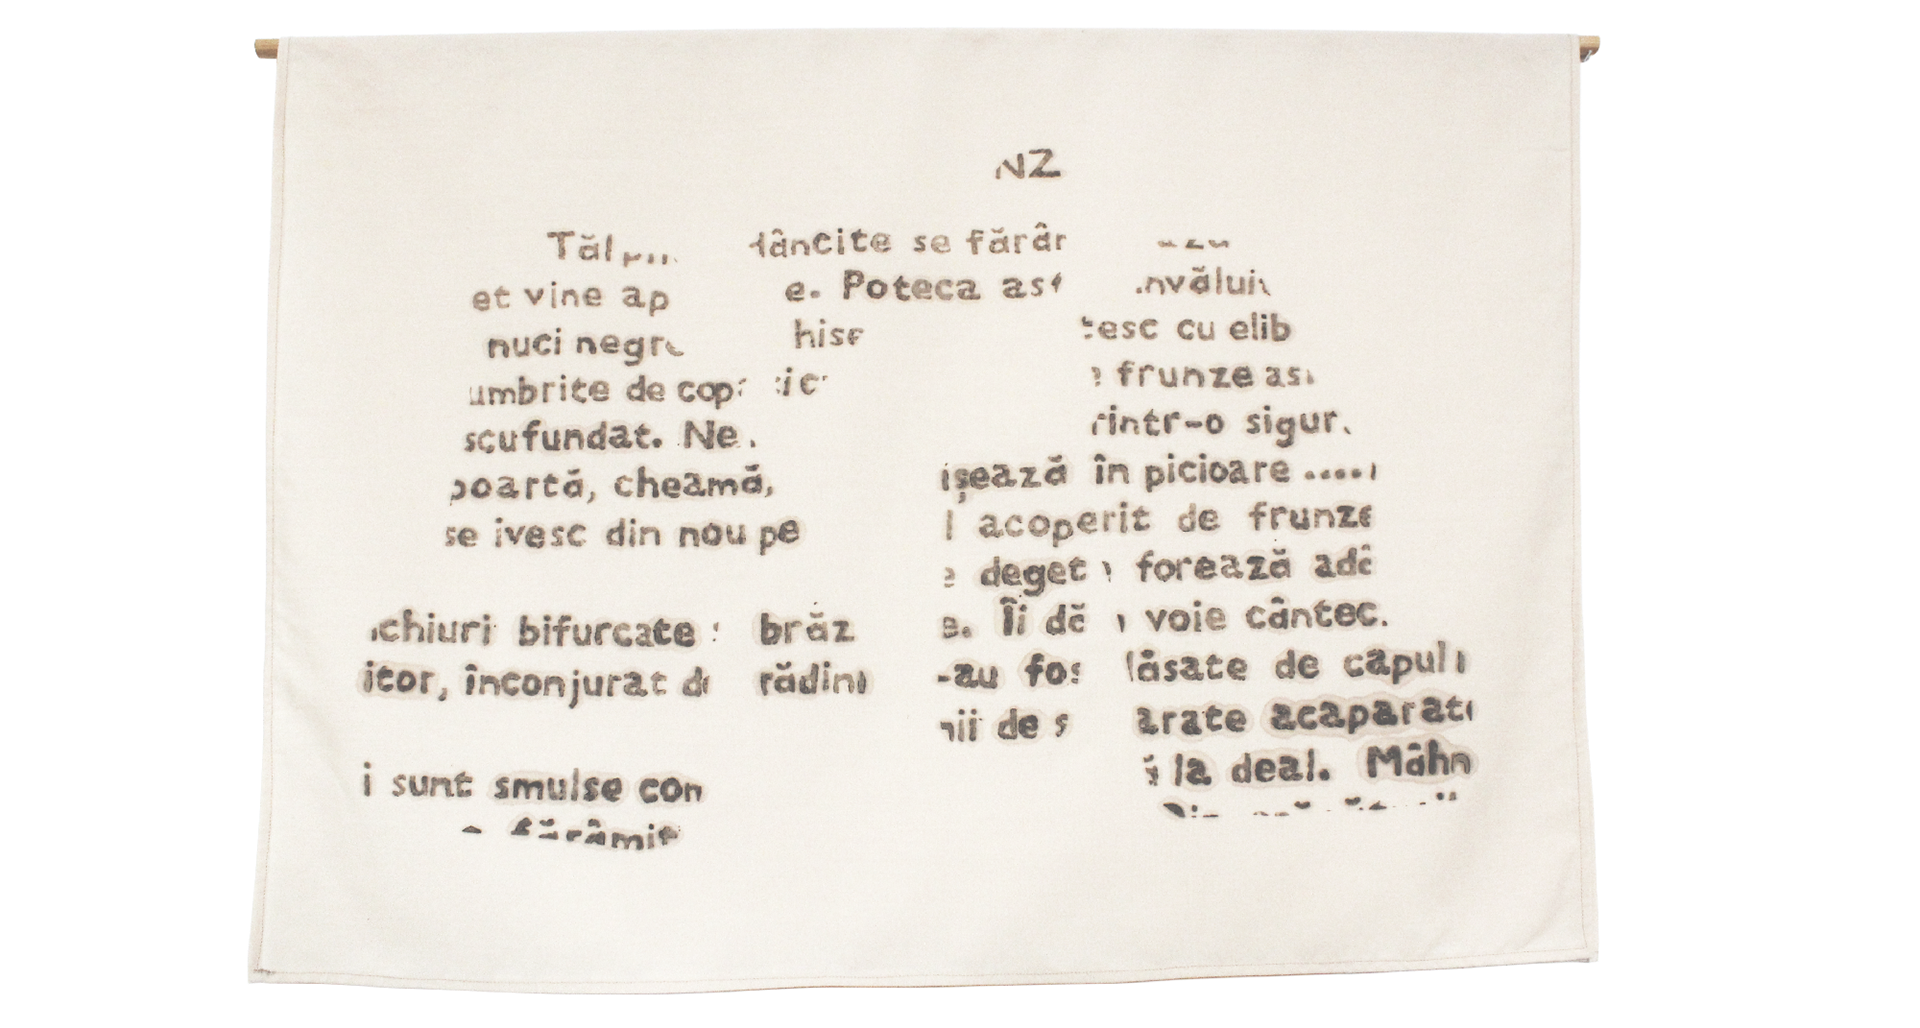 NZ
Tăl dâncite se fărâr
et vine ap e. Poteca ast învălui
nuci negre hise tesc cu elib
umbrite de cop ic frunze as
scufundat. Ne rintr-o sigur
poartă, cheamă, ișează în picioare .....
se ivesc din nou pe l acoperit de frunze
e deget forează adâ
chiuri bifurcate brăz e. Îi dă voie cântec.
itor, înconjurat de rădini -au fos lăsate de capul
nii de s arate acaparat
i sunt smulse con la deal. Mâhn
fărâmit